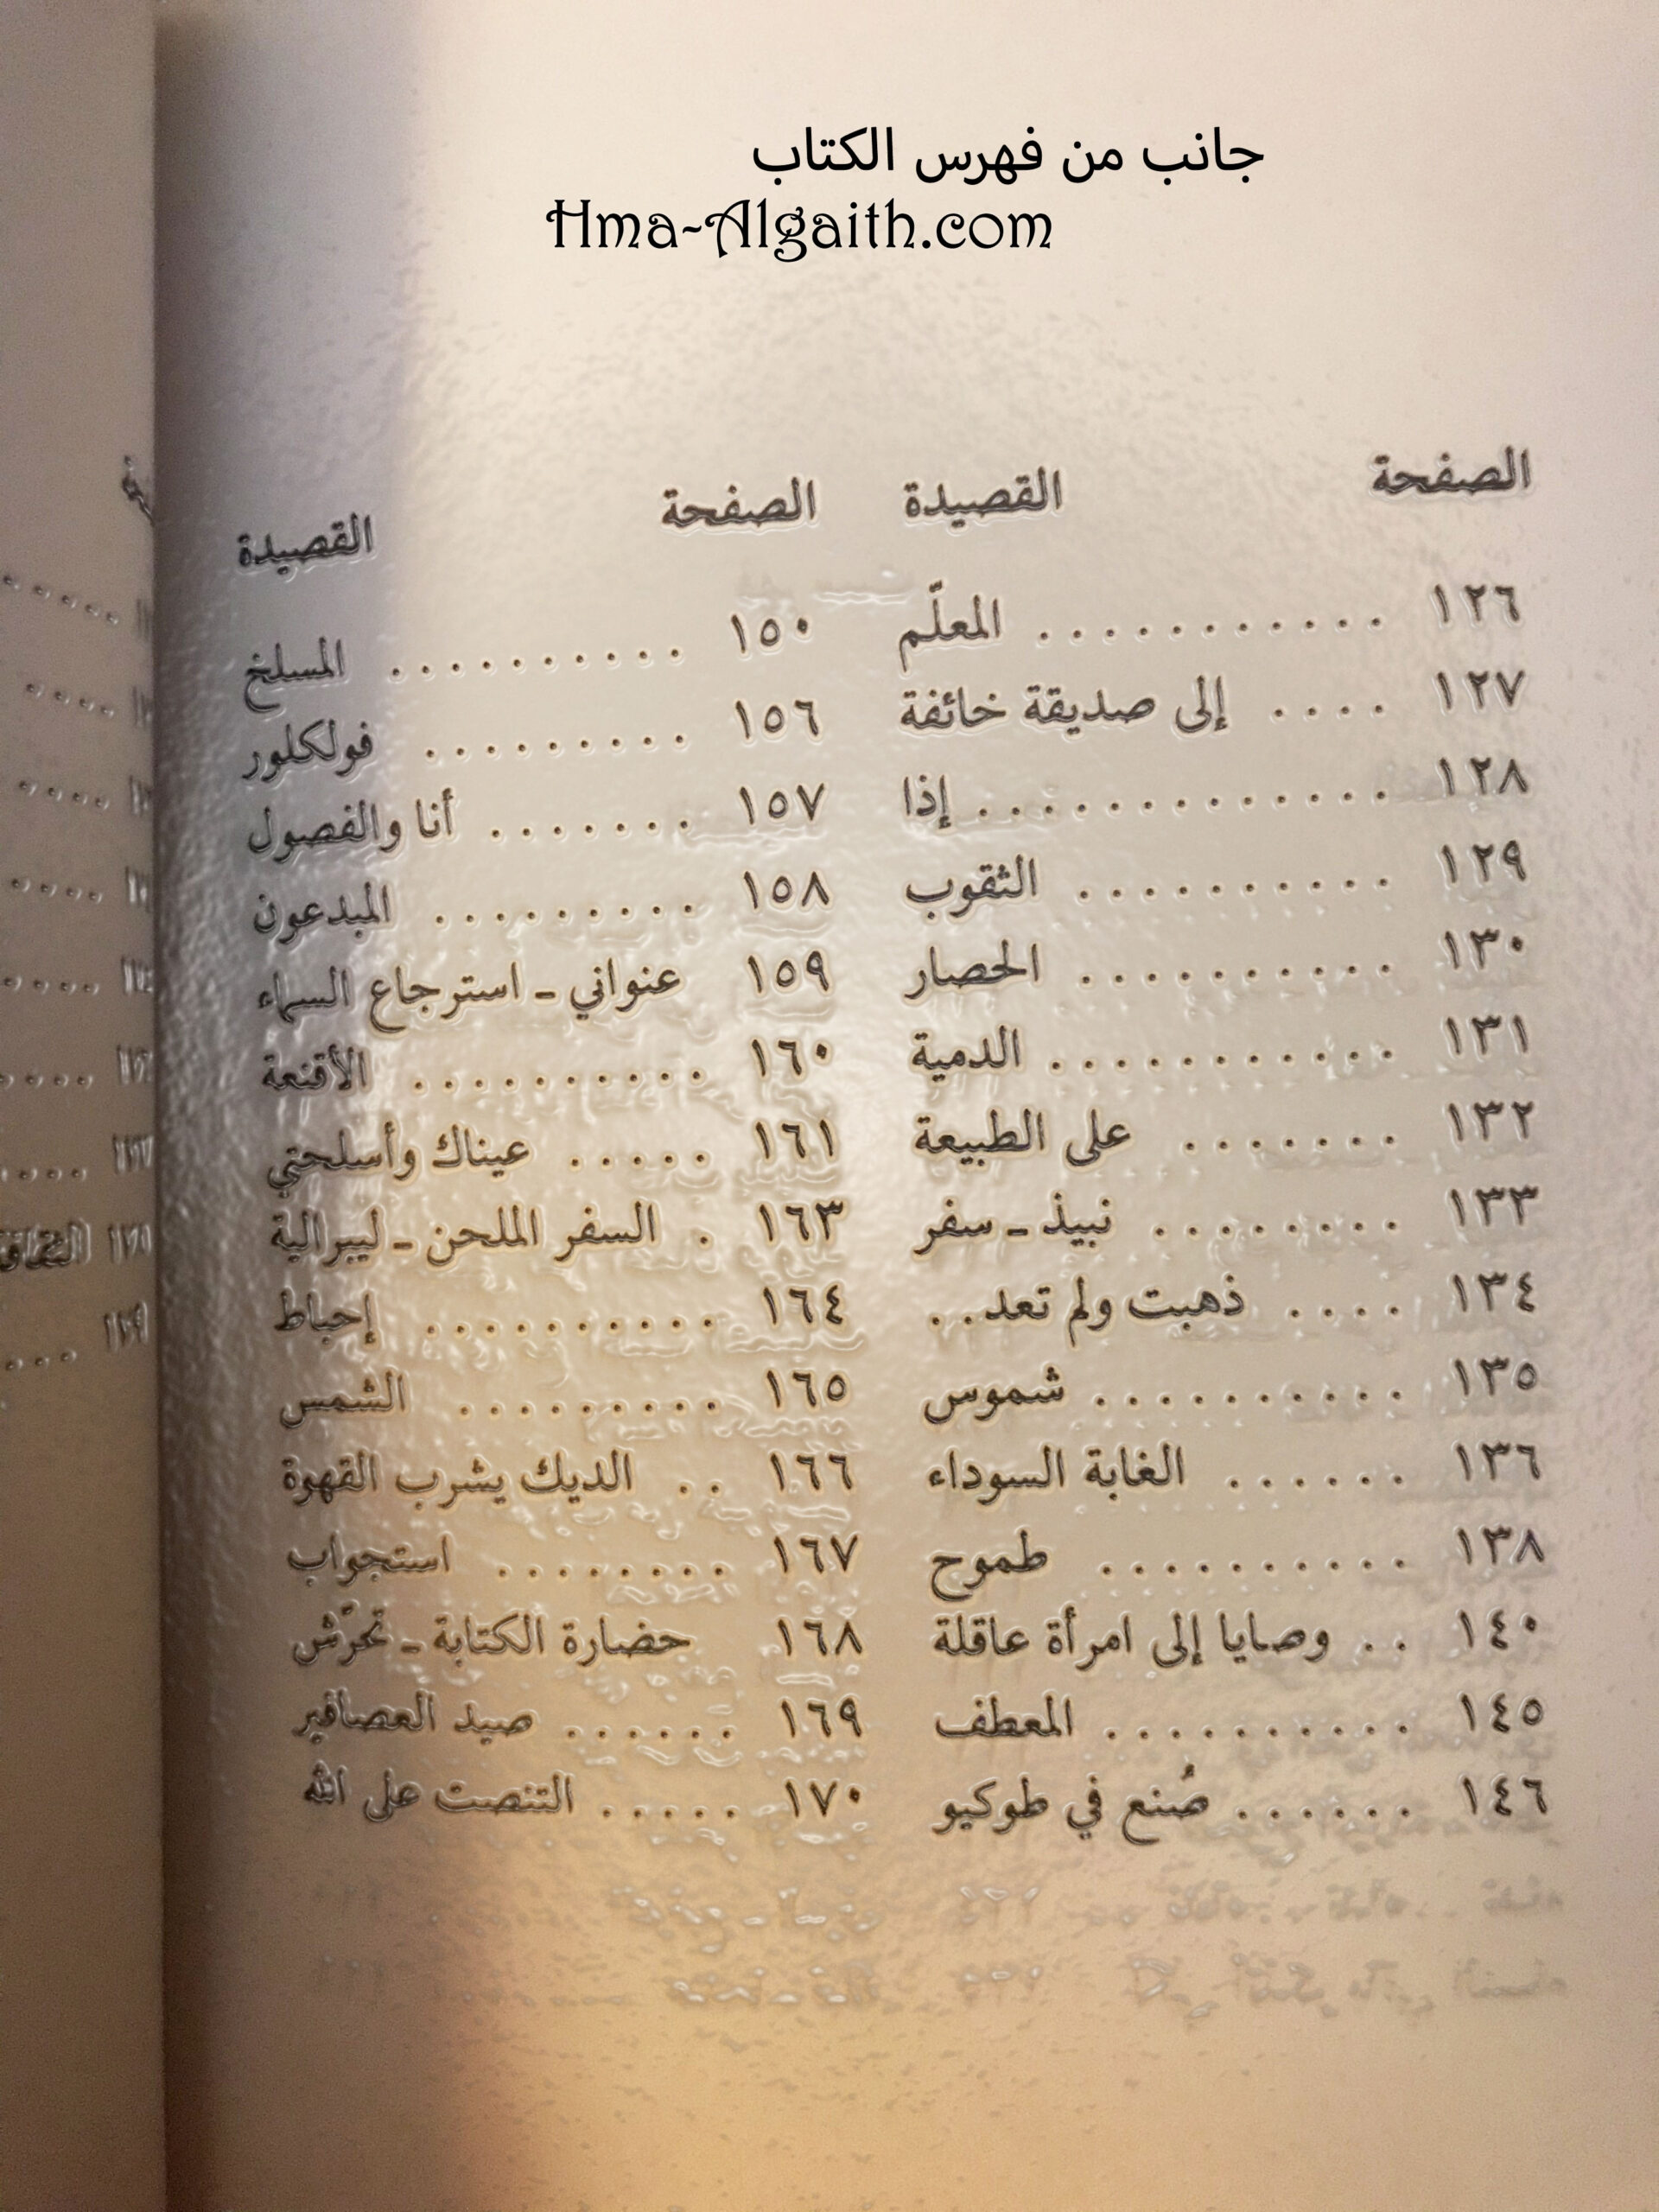 جانب من فهرس الكتاب
Hma-Algaith.com
الصفحة القصيدة
١٢٦ . . . . . . . . . . . المعلّم
١٢٧ . . . . إلى صديقة خائفة
١٢٨ . . . . . . . . . . . . . إذا
١٢٩ . . . . . . . . . . الثقوب
١٣٠ . . . . . . . . . . الحصار
١٣١ . . . . . . . . . . . الدمية
١٣٢ . . . . . . . على الطبيعة
١٣٣ . . . . . . . . نبيذ - سفر
١٣٤ . . . . ذهبت ولم تعد . .
١٣٥ . . . . . . . . . . شموس
١٣٦ . . . . . . الغابة السوداء
١٣٨ . . . . . . . . . . طموح
١٤٠ . . وصايا إلى امرأة عاقلة
١٤٥ . . . . . . . . . . المعطف
١٤٦ . . . . . . صُنع في طوكيو
الصفحة القصيدة
١٥٠ . . . . . . . . . . المسلخ
١٥٦ . . . . . . . . . فولكلور
١٥٧ . . . . . . . أنا والفصول
١٥٨ . . . . . . . . . المبدعون
١٥٩ عنواني - استرجاع السماء
١٦٠ . . . . . . . . . . الأقنعة
١٦١ . . . . . عيناك وأسلحتي
١٦٣ . السفر الملحن - ليبرالية
١٦٤ . . . . . . . . . . إحباط
١٦٥ . . . . . . . . . الشمس
١٦٦ . . الديك يشرب القهوة
١٦٧ . . . . . . . . استجواب
١٦٨ حضارة الكتابة - تحرّش
١٦٩ . . . . . . صيد العصافير
١٧٠ . . . . . التنصت على الله